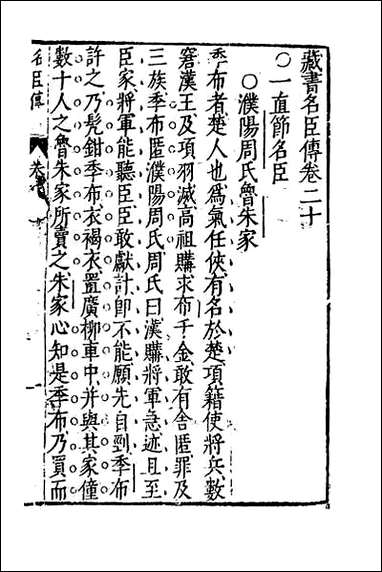 藏書名臣傳卷二十
○一直節名臣
○濮陽周氏魯朱家
季布者楚人也為氣任俠有名於楚項籍使將兵數
窘漢王及項羽滅高祖購求布千金敢有舍匿罪及
三族季布匿濮陽周氏周氏曰漢購將軍急迹且至
臣家將軍能聽臣臣敢獻計即不能願先自剄季布
許之乃髡鉗季布衣褐衣置廣柳車中并與其家僮
數十人之魯朱家所賣之朱家心知是季布乃買而
名臣傳 卷